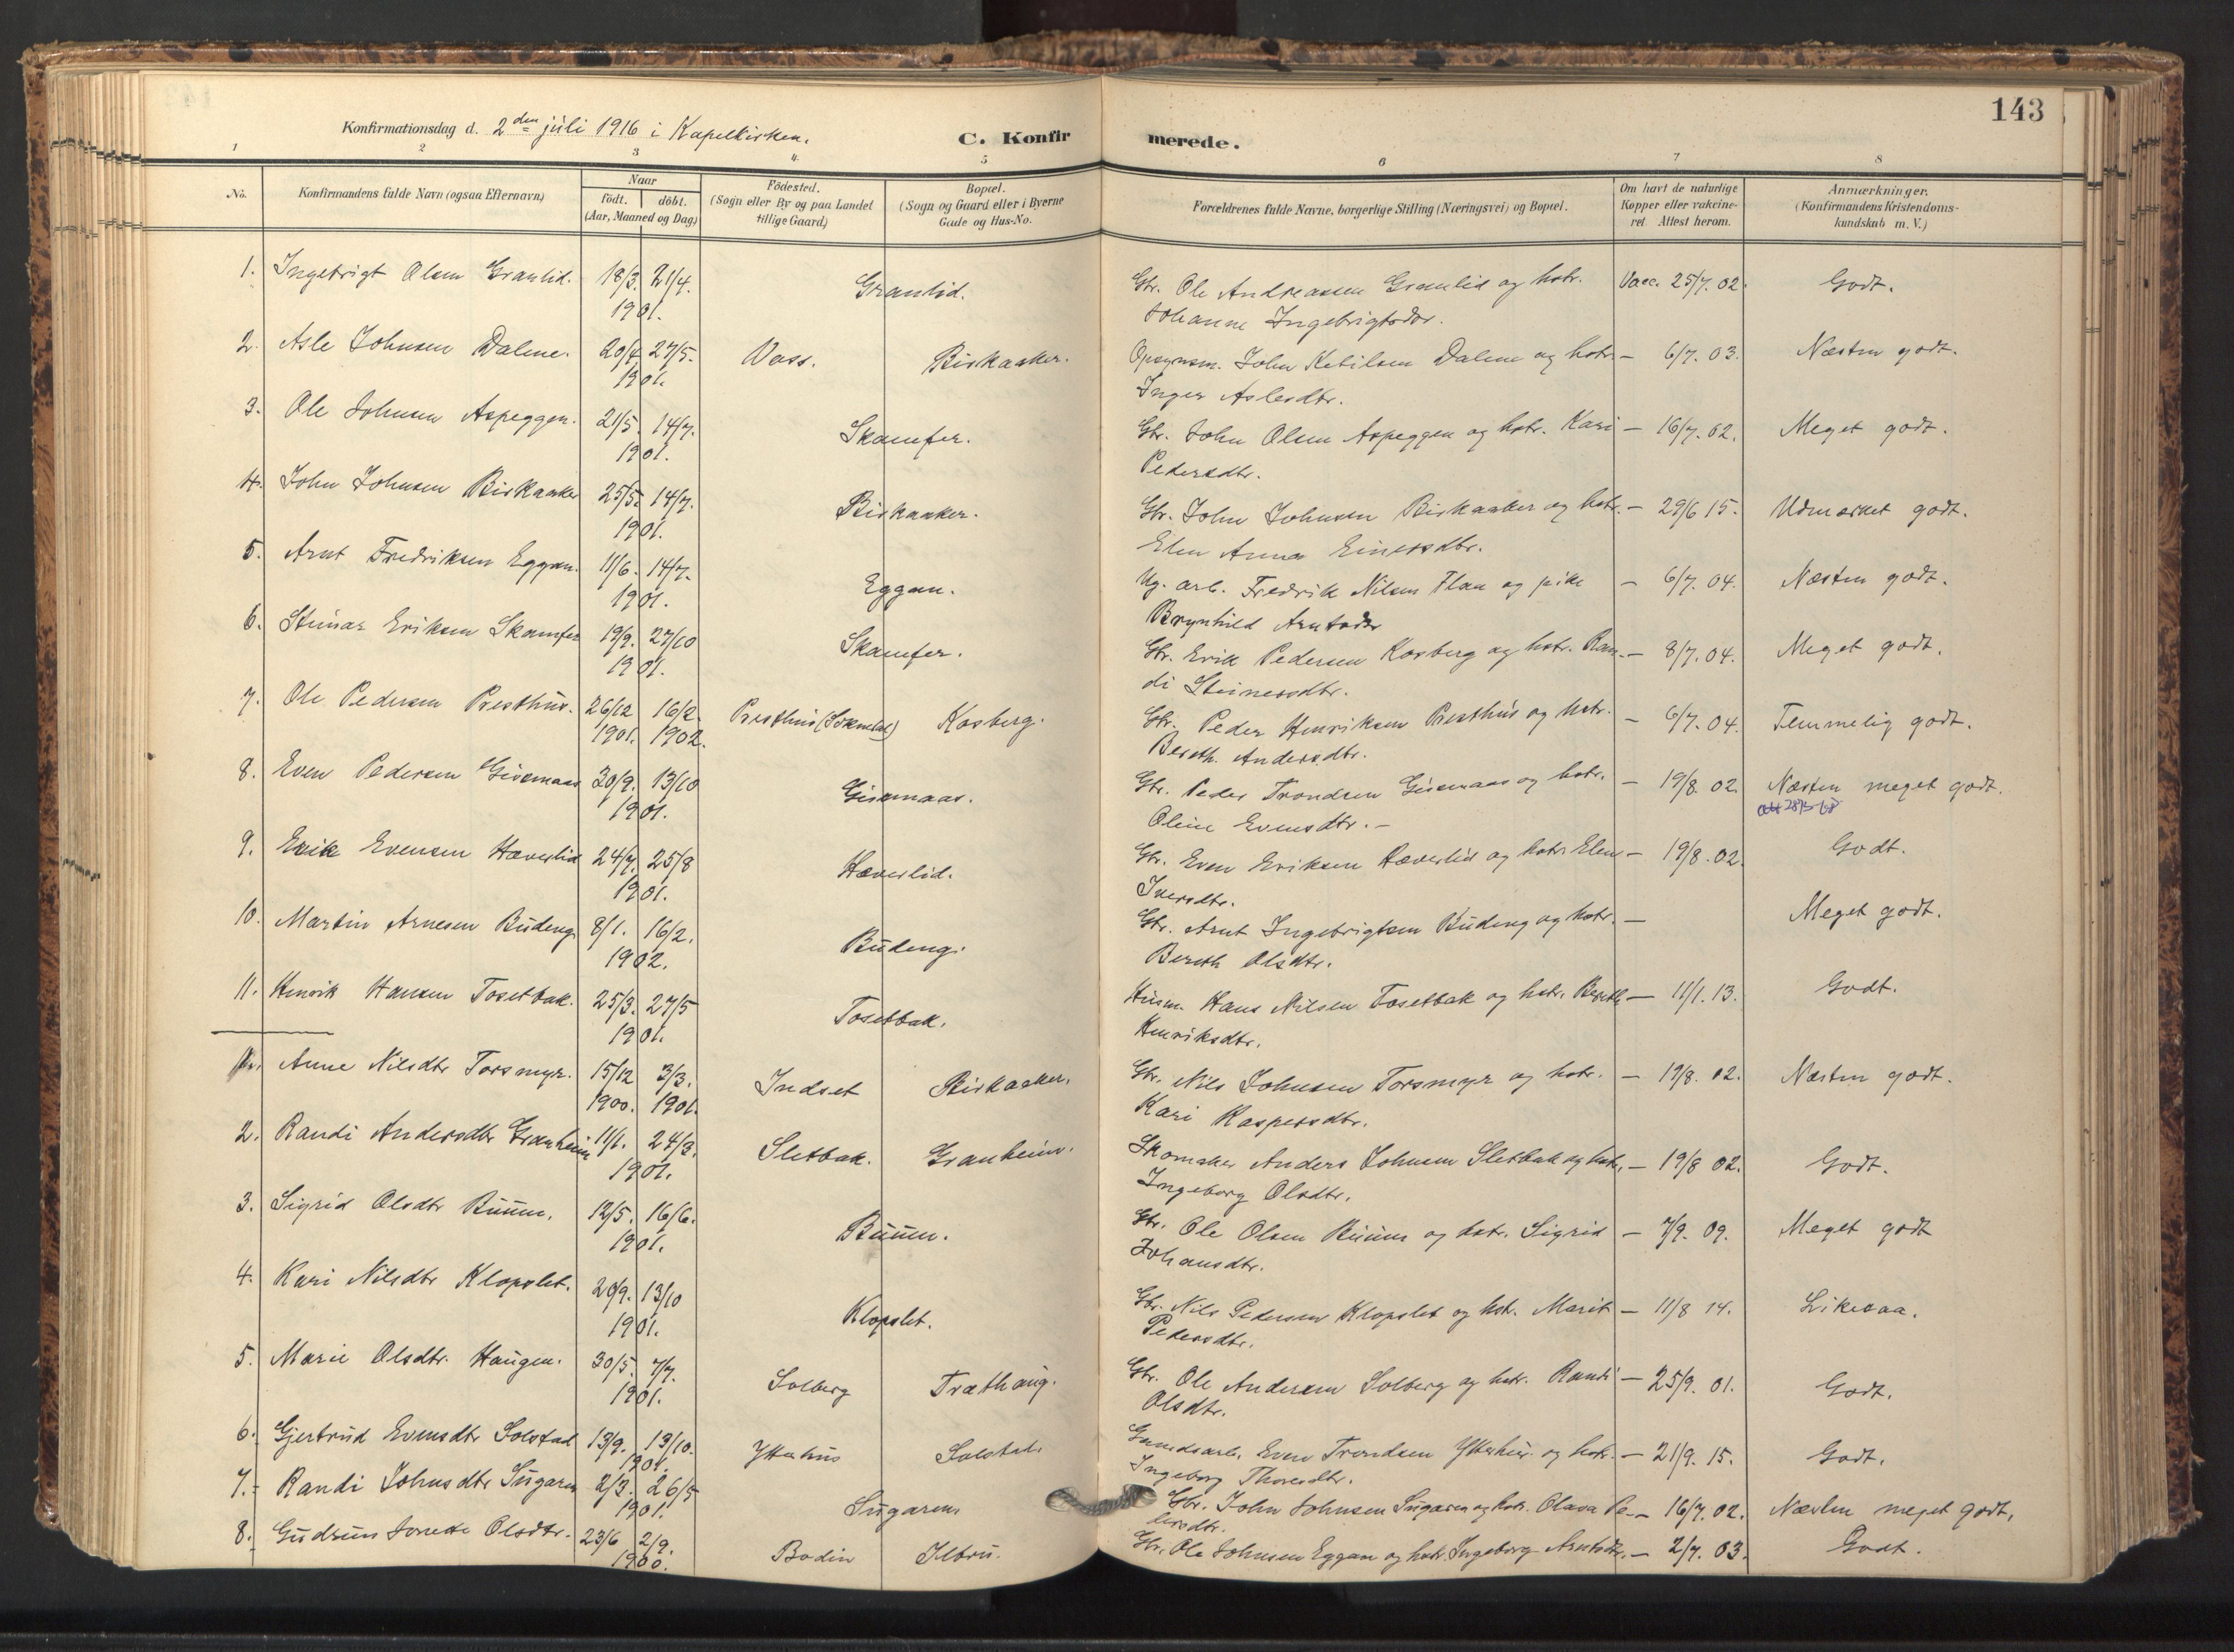 143
Konfirmationsdag d. 2den juli 1916 i Kapelkirken.
C. Konfirmerede.
1 2 3 4 5 6 7 8
No. Konfirmandens fulde Navn (ogsaa Efternavn) Naar født. døbt. (Aar, Maaned og Dag) Fødested. (Sogn eller By og paa Landet tillige Gaard) Bopæl. (Sogn og Gaard eller i Byerne Gade og Hus-No. Forældrenes fulde Navne, borgerlige Stilling (Næringsvei) og Bopæl. Om havt de naturlige Kopper eller vakcineret. Attest herom. Anmærkninger. (Konfirmandens Kristendomskundskab m. V.)
1. Ingebrigt Olsen Granlid. 18/3. 21/4. Granlid. Gbr. Ole Andreassen Granlid og hstr. Vacc. 25/7. 02. Godt.
1901. Johanne Ingebrigtsdtr.
2. Asle Johnsen Dalene. 20/4 27/5. Voss. Biskaaker. Opsynsm. John Ketilsen Dalene og hstr. – 6/7. 03. Næsten godt.
1901. Inger Aslesdtr.
3. Ole Johnsen Aspeggen. 21/5. 14/7. Skamfer. Gbr. John Olsen Aspeggen og hstr. Kari – 16/7. 02. Meget godt.
1901. Pedersdtr.
4. John Johnsen Biskaaker 25/5. 14/7. Biskaaker. Gbr. John Johnsen Biskaaker og hstr. – 29/6 15. Udmerket godt.
1901. Elen Anna Einersdtr.
5. Arnt Fredriksen Eggan. 11/6. 14/7. Eggan. Ug. arb. Fredrik Nilsen Flaa og pike – 6/7. 04. Næsten godt.
1901. Brynhild Arntsdtr
6. Steinar Eriksen Skamfer 19/9. 27/10 Skamfer. Gbr. Erik Pedersen Kosberg og hstr. Ran- – 8/7. 04. Meget godt.
1901. di Steinersdtr.
7. Ole Pedersen Presthus. 26/12 16/2. Presthus (Soknedal) Kosberg. Gbr. Peder Henriksen Presthus og hstr. – 6/7. 04. Temmelig godt.
1901. 1902. Bereth. Andersdtr.
8. Even Pedersen Gisemaas 30/9. 13/10 Gisemaas. Gbr. Peder Trondsen Gisemaas og hstr. – 19/8. 02. Næsten meget godt.
1901. Oline Evensdtr. –
9. Erik Evensen Hæverlid 24/7. 25/8 Hæverlid. Gbr. Even Eriksen Hæverlid og hstr Elen – 19/8. 02. Godt.
1901. Iversdtr.
10. Martin Arnesen Budeng. 8/1. 16/2. Budeng. Gbr. Arnt Ingebrigtsen Budeng og hstr. – Meget godt.
1902. Bereth Olsdtr.
11. Henrik Hansen Tosetbak. 25/3. 27/5 Tosetbak. Husm. Hans Nilsen Tosetbak og hstr. Bereth – 11/1. 13. Godt.
1901. Henriksdtr.
1. Anne Nilsdtr Torsmyr. 15/12 3/3. Indset Biskaaker. Gbr. Nils Johnsen Torsmyr og hstr. – 19/8. 02. Næsten godt.
1900. 1901. Kari Kaspersdtr.
2. Randi Andersdtr Granheim 11/1. 24/3. Sletbak. Granheim. Skomaker Anders Johnsen Sletbak og hstr. – 19/8 02. Godt.
1901. Ingeborg Olsdtr.
3. Sigrid Olsdtr Buum. 12/5. 16/6. Buum. Gbr. Ole Olsen Buum og hstr. Sigrid – 7/9. 09. Meget godt
1901. Johansdtr.
4. Kari Nilsdtr Klopslet. 20/9. 13/10 Klopslet. Gbr. Nils Pedersen Klopslet og hstr. Marit – 11/8 14. Likesaa.
1901. Pedersdtr.
5. Marie Olsdtr. Haugen. 30/5. 7/7. Solberg Træthaug. Gbr. Ole Andersen Solberg og hstr. Randi – 25/9. 01. Godt.
1901. Olsdtr.
6. Gjertrud Evensdtr Solstad 13/9. 13/10. Ytterhus Solstad. Even Trondsen Ytterhus. og hstr. – 21/9. 15. Godt.
1901. Ingeborg Thoresdtr.
7. Randi Johnsdtr Sugaren 2/3. 26/5 Sugaren Gbr. John Johnsen Sugaren og hstr. Olava Pe- – 16/7. 02. Næsten meget godt.
1901. dersdtr.
8. Gudrun Olsdtr. 23/6 2/9. Bodin Ilbru. Gbr. Ole Johnsen Eggan og hstr. Ingeborg Arntsdtr. – 2/7. 03. Godt.
1900.